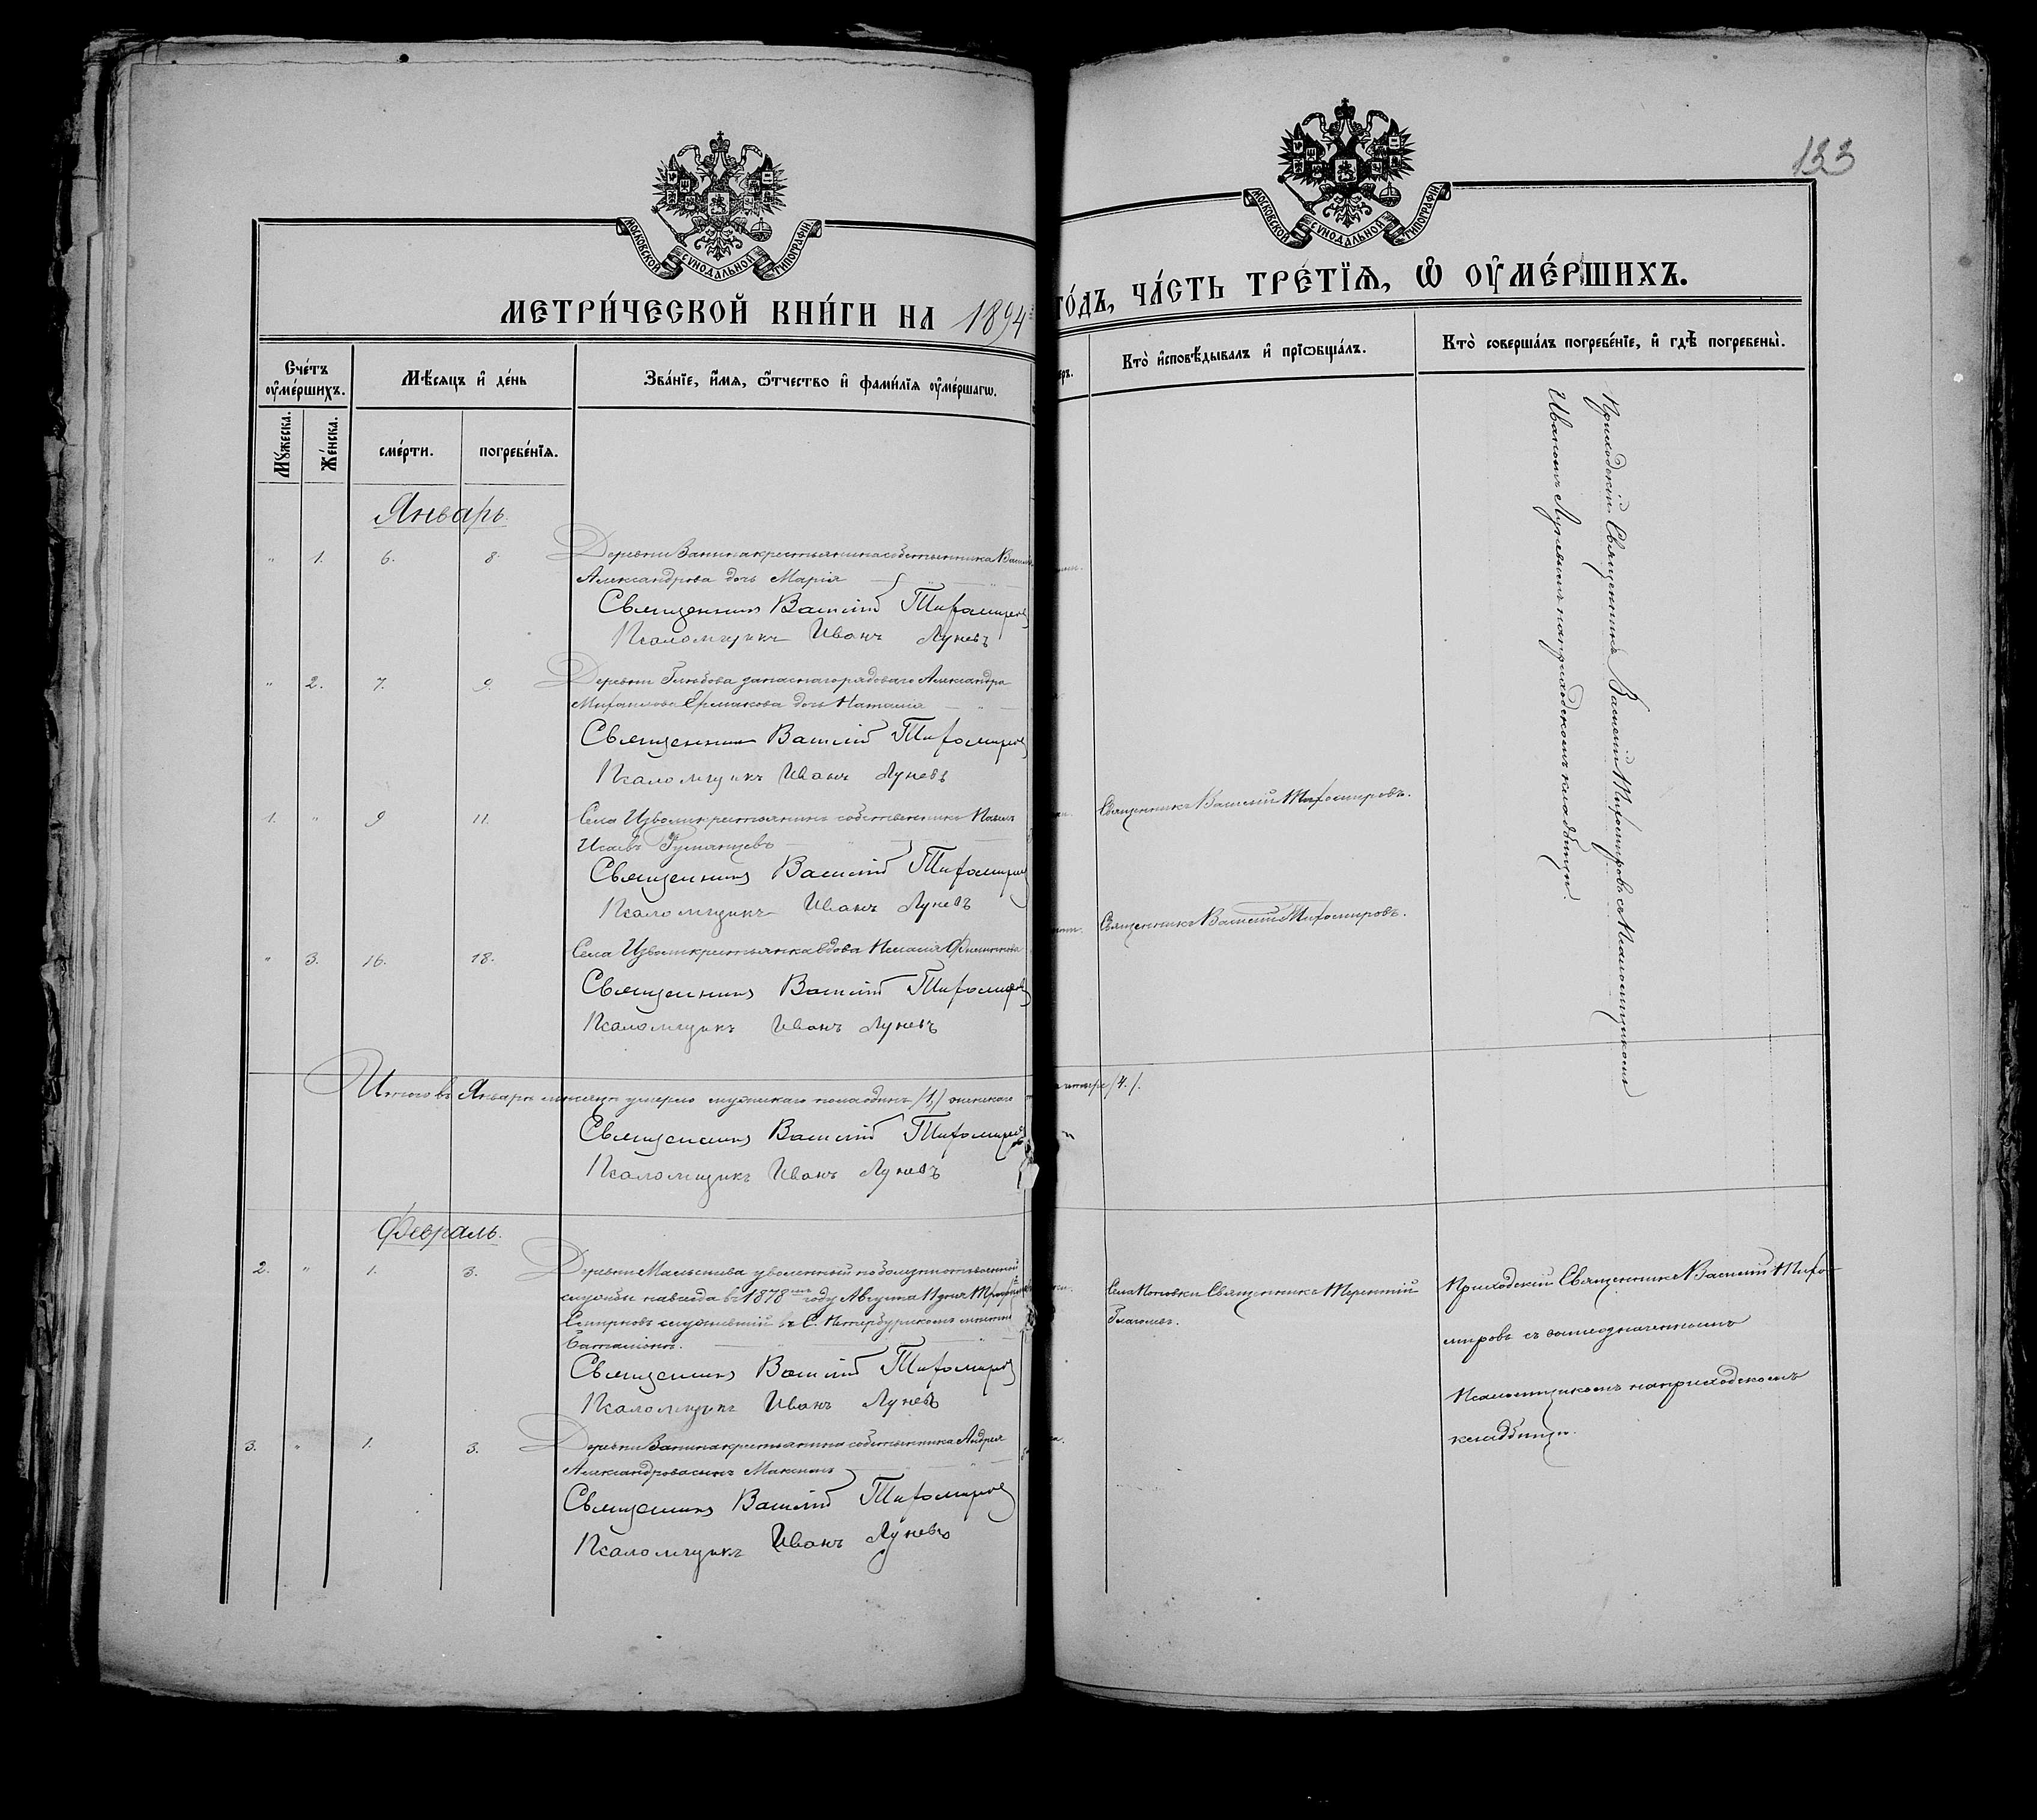 133
МОСКОВСКОЙ СѴНОДАЛЬНОЙ ТИПОГРАФІИ
МОСКОВСКОЙ СѴНОДАЛЬНОЙ ТИПОГРАФІИ
МЕТРИ́ЧЕСКОЙ КНИ́ГИ НА 1894
ГО́ДЪ, ЧА́СТЬ ТРЕ́ТЇѦ, Ѡ҆ ОУ҆МЕ́РШИХЪ.
Сче́тъ оу҆ме́ршихъ.
Мѣ́сяцъ и҆ де́нь
Зва́нїе, и҆́мя, ѻ҆́тчество и҆ фами́лїя оу҆ме́ршагѡ.
Кто̀ и҆сповѣ́дывалъ и҆ прїѡбща́лъ.
Кто̀ соверша́лъ погребе́нїе, и҆ гдѣ̀ погребены̀.
Мꙋ́жеска.
Же́нска.
сме́рти.
погребе́нїя.
Январь.
" 1. 6. 8. Деревни Ванина крестьянина собственника
Александрова дочь Марія
Священникъ Василій Тихомировъ
Псаломщикъ Иванъ Луневъ
" 2. 7. 9. Деревни Глѣбова запаснаго рядоваго Александра
Михаилова Ермакова дочь Наталія
Священникъ Василій Тихомировъ
Псаломщикъ Иванъ Луневъ
1. " 9 11. Села Изволи крестьянинъ собственникъ Павелъ
Исаевъ Румянцевъ
Священникъ Василій Тихомировъ
Псаломщикъ Иванъ Луневъ
Священникъ Василій Тихомировъ.
" 3. 16. 18. Села Изволи крестьянка вдова
Священникъ Василій Тихомировъ
Псаломщикъ Иванъ Луневъ
Священникъ Василій Тихомировъ.
Приходскій Священникъ Василій Тихомировъ съ Псаломщикомъ
Иваномъ Луневымъ на приходскомъ кладбищѣ.
Итого въ Январѣ мѣсяцѣ умерло мужескаго пола одинъ /1,/ женскаго
/4./.
Священникъ Василій Тихомировъ
Псаломщикъ Иванъ Луневъ
Февраль.
2. " 1. 3. Деревни уволенный по болѣзни отъ военной
службы навсегда въ 1878мъ году Августа 11 дня
Смирновъ служившій въ С. Петербургскомъ мѣстномъ
баталіонѣ.
Священникъ Василій Тихомировъ
Псаломщикъ Иванъ Луневъ
Священникъ Терентій
Глаголевъ.
Приходскій Священникъ Василій Тихо-
мировъ съ вышеозначеннымъ
Псаломщикомъ на приходскомъ
кладбищѣ.
3. " 1. 3. Деревни Ванина крестьянина собственника Андрея
Александрова сынъ Максимъ
Священникъ Василій Тихомировъ
Псаломщикъ Иванъ Луневъ